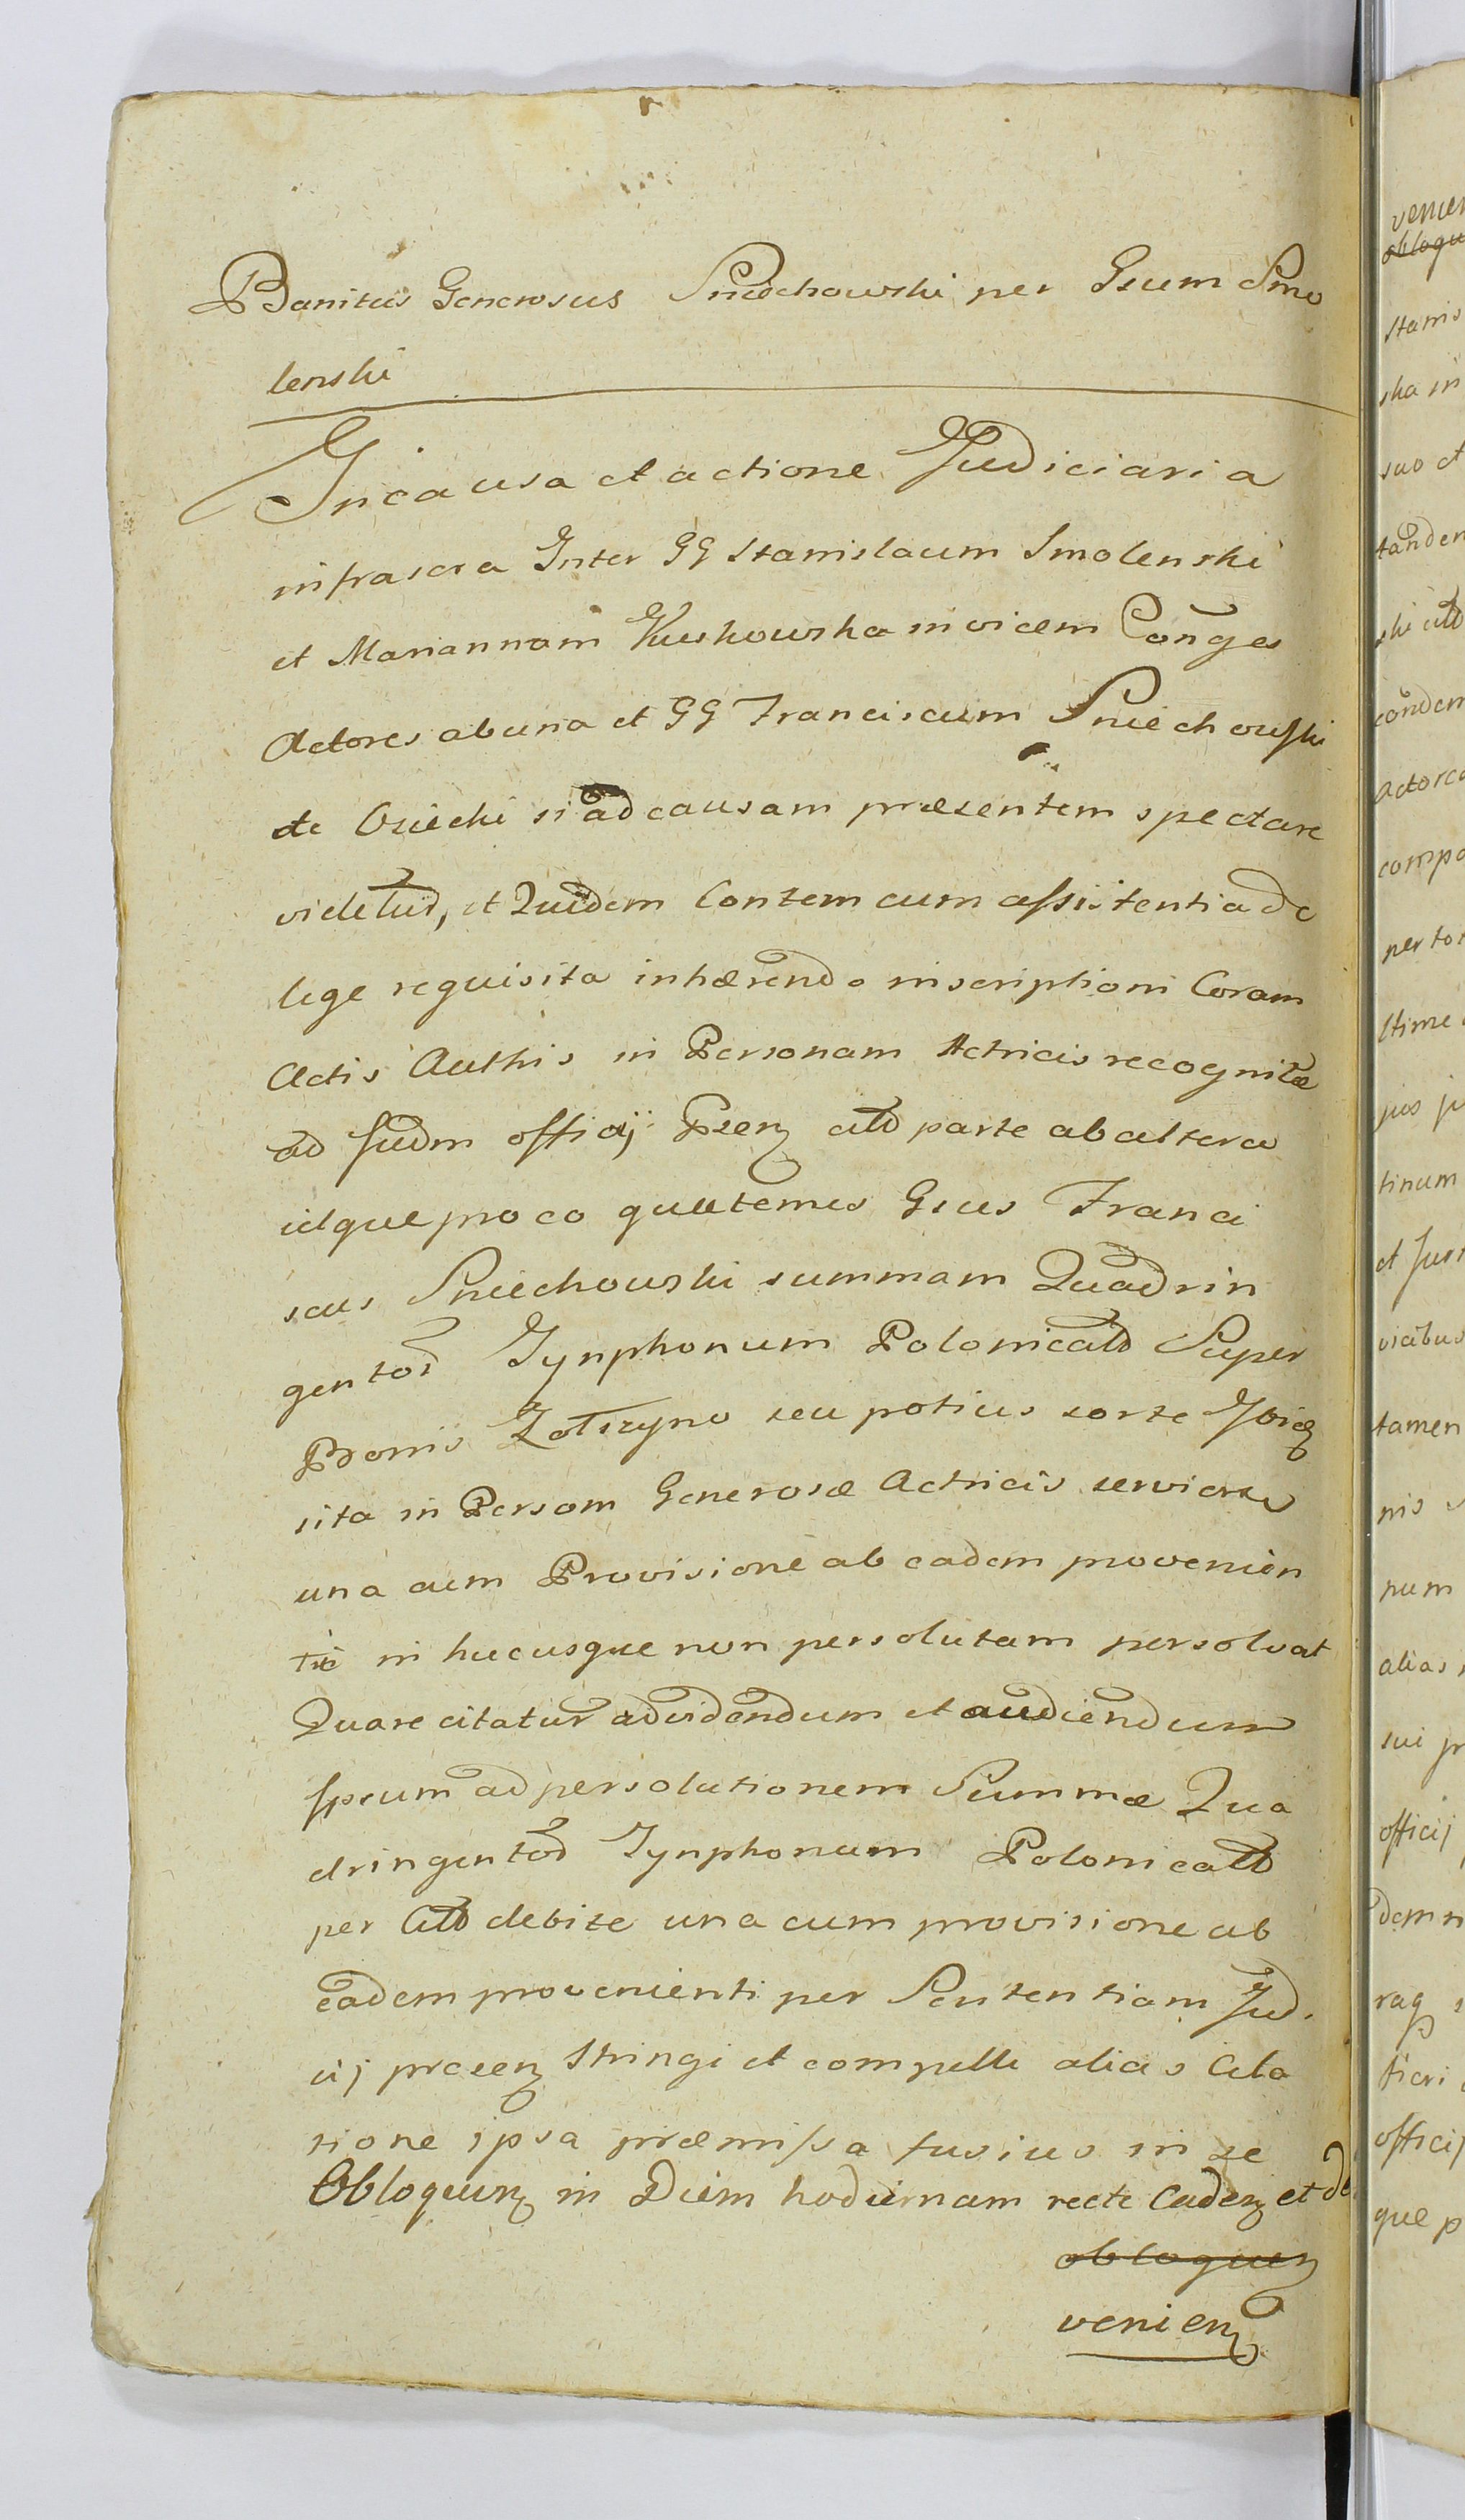 Banitus Generosus Sniechowski per Gsum Smo
lenski
In causa et actione Judiciaria
infrascra Inter GG Stanislaum Smolenski
et Mariannam Kuskowska invicem Conges
Actores ab una et GG Franciscum Sniechowski
de Osiecki si ad causam præsentem spectare
videtur, et Quidem Contem cum assistentia de
lege requisita inhærendo inscriptioni Coram
Actis Authis in Personam Actricis recognitæ
ad Judm officij Psen attd parte ab altera
idque pro eo quatemus Gsus Franci
scus Sniechowski summam Quadrin
gentor Tynphonum Polonicald Super
Bonis Zotszyno seu potius sorte
sita in Persom Generosæ Actricis
una cum Provisione ab eadem provenien
ti in hucusque non persolutam persolvat
Quare citatur ad videndum et audiendum
Ipsum ad persolutionem Summæ Qua
dringentor Tynphonum Polonicald
per Citd debite una cum provisione ab
eadem provenienti per Sententiam Jud.
cij præsen stringi et compelli alias Cita
tione ipsa præmissa fusius in se
Obloquen in Diem hodiernam recte Caden et de
obloquen
venien
venien
obloqu
Stanis
ska in
suo et
tandem
ski citd
eandem
Actorea
compa
per to
stime
jus ju
tinum
et Jur
vicibus
tamen
nis
num
alias
sui pr
officij
dem n
raq
fieri
officij
que p